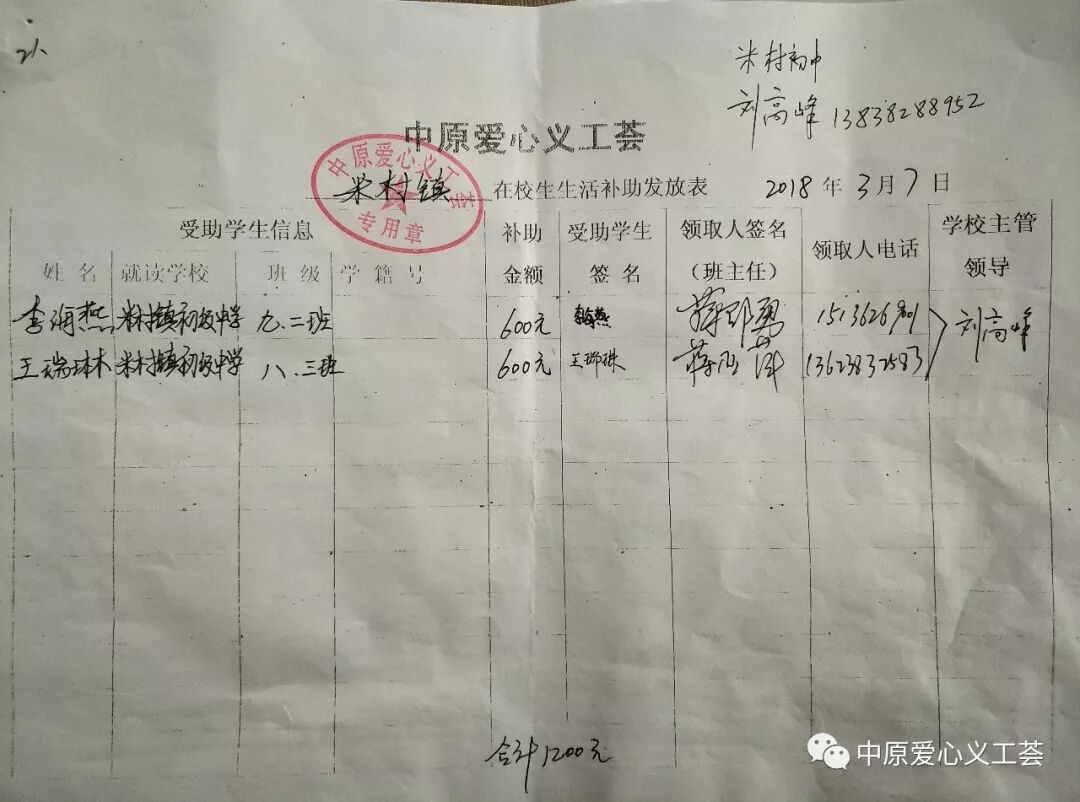 2人
米村初中
刘高峰 13838288952
中原爱心义工荟
米村镇 在校生生活补助发放表 2018 年 3 月 7 日
中原爱心义工荟
专用章
受助学生信息 补助金额 受助学生签名 领取人签名（班主任） 领取人电话 学校主管领导
姓名 就读学校 班级 学籍号
李海燕 米村镇初级中学 九.二班 600元 李海燕 刘高峰
王瑞琳 米村镇初级中学 八.三班 600元 王瑞琳 13623832583
合计1200元
中原爱心义工荟